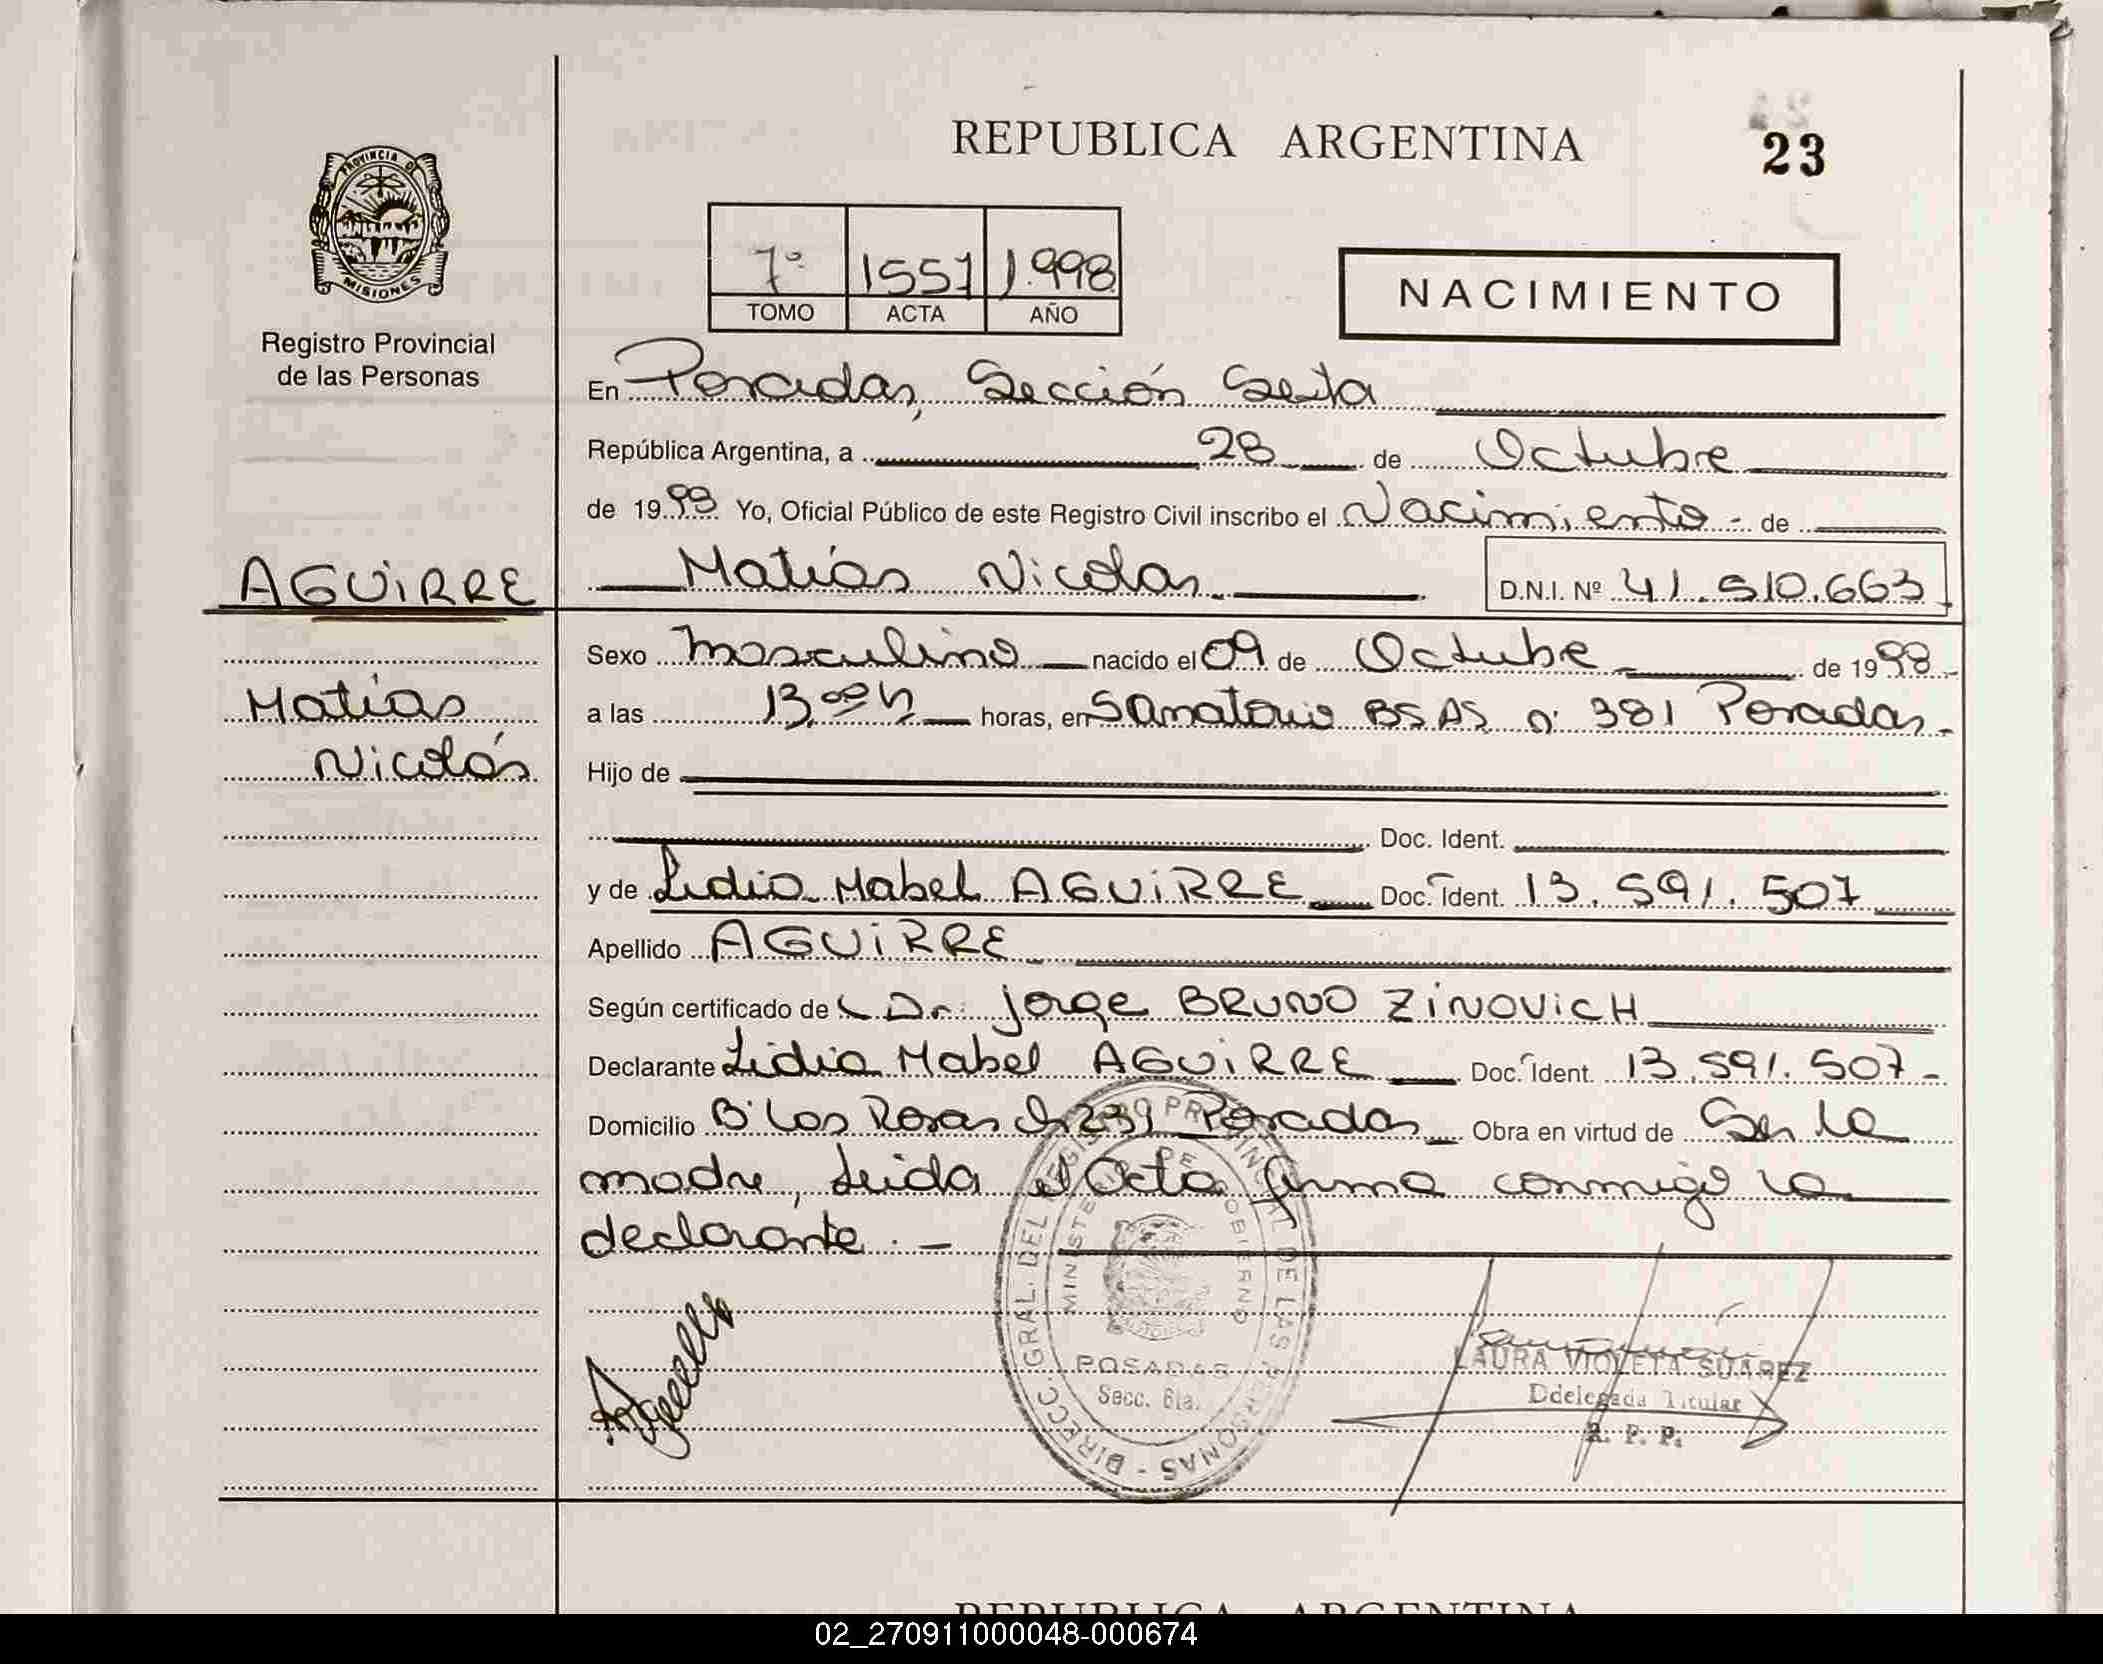 REPUBLICA ARGENTINA
23
PROVINCIA DE
MISIONES
Registro Provincial
de las Personas
7º 1557 1.998
TOMO ACTA AÑO
NACIMIENTO
En Posadas, Sección Sexta
República Argentina, a 28 de Octubre
de 1998 Yo, Oficial Público de este Registro Civil inscribo el Nacimiento - de
AGUiRRE
Matías Nicolas
D.N.I. Nº 41.510.663
Sexo masculino nacido el 09 de Octubre de 1998
Matías
a las 13,00 h horas, en Sanatorio BS.AS. nº 381 Posadas.-
Nicolás
Hijo de
Doc. Ident.
y de Lidia Mabel AGUiRRE Doc. Ident. 13.591.507
Apellido AGUiRRE
Según certificado de Dr. Jorge BRUNO ZiNOViCH
Declarante Lidia Mabel AGUiRRE Doc. Ident. 13.591.507-
Domicilio Bº Los Rosas 239 Posadas Obra en virtud de Ser la
madre, Leida el Acta firma conmigo la
declarante.-
DIRECC. GRAL. DEL REGISTRO PROVINCIAL DE LAS PERSONAS -
MINISTERIO DE GOBIERNO
POSADAS
Secc. 6ta.
LAURA VIOLETA SUAREZ
Ddelegada Titular
R. P. P.
REPUBLICA ARGENTINA
02_270911000048-000674